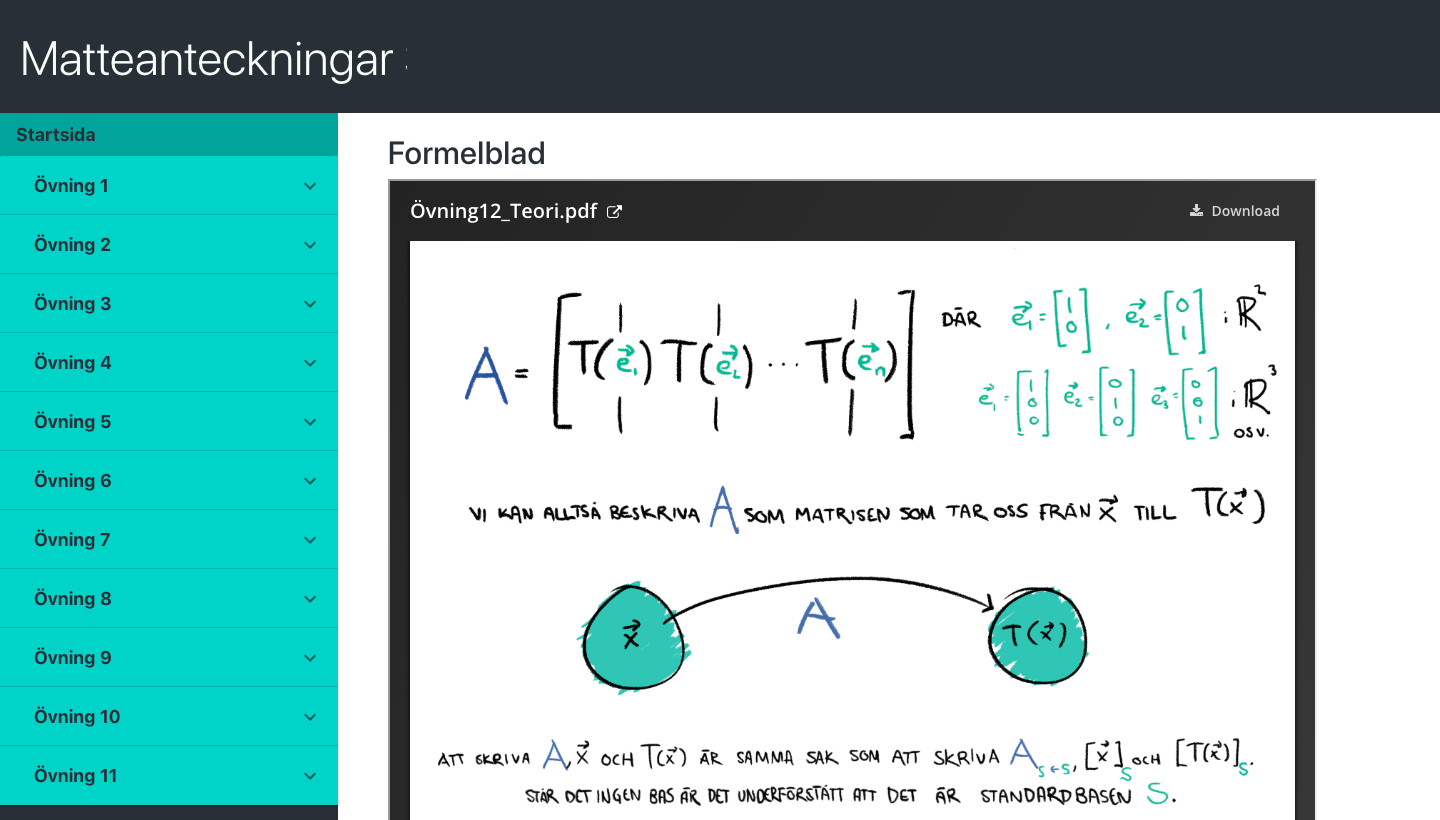 Matteanteckningar
Startsida
Övning 1
Övning 2
Övning 3
Övning 4
Övning 5
Övning 6
Övning 7
Övning 8
Övning 9
Övning 10
Övning 11
Formelblad
Övning12_Teori.pdf
Download
A = [T(e⃗₁) T(e⃗₂) ⋯ T(e⃗ₙ)] DÄR e⃗₁ = [1 0], e⃗₂ = [0 1] i ℝ²
e⃗₁ = [1 0 0] e⃗₂ = [0 1 0] e⃗₃ = [0 0 1] i ℝ³
OSV.
VI KAN ALLTSÅ BESKRIVA A SOM MATRISEN SOM TAR OSS FRÅN x⃗ TILL T(x⃗)
x⃗ A T(x⃗)
ATT SKRIVA A, x⃗ OCH T(x⃗) ÄR SAMMA SAK SOM ATT SKRIVA A S←S, [x⃗]S OCH [T(x⃗)]S.
STÅR DET INGEN BAS ÄR DET UNDERFÖRSTÅTT ATT DET ÄR STANDARDBASEN S.